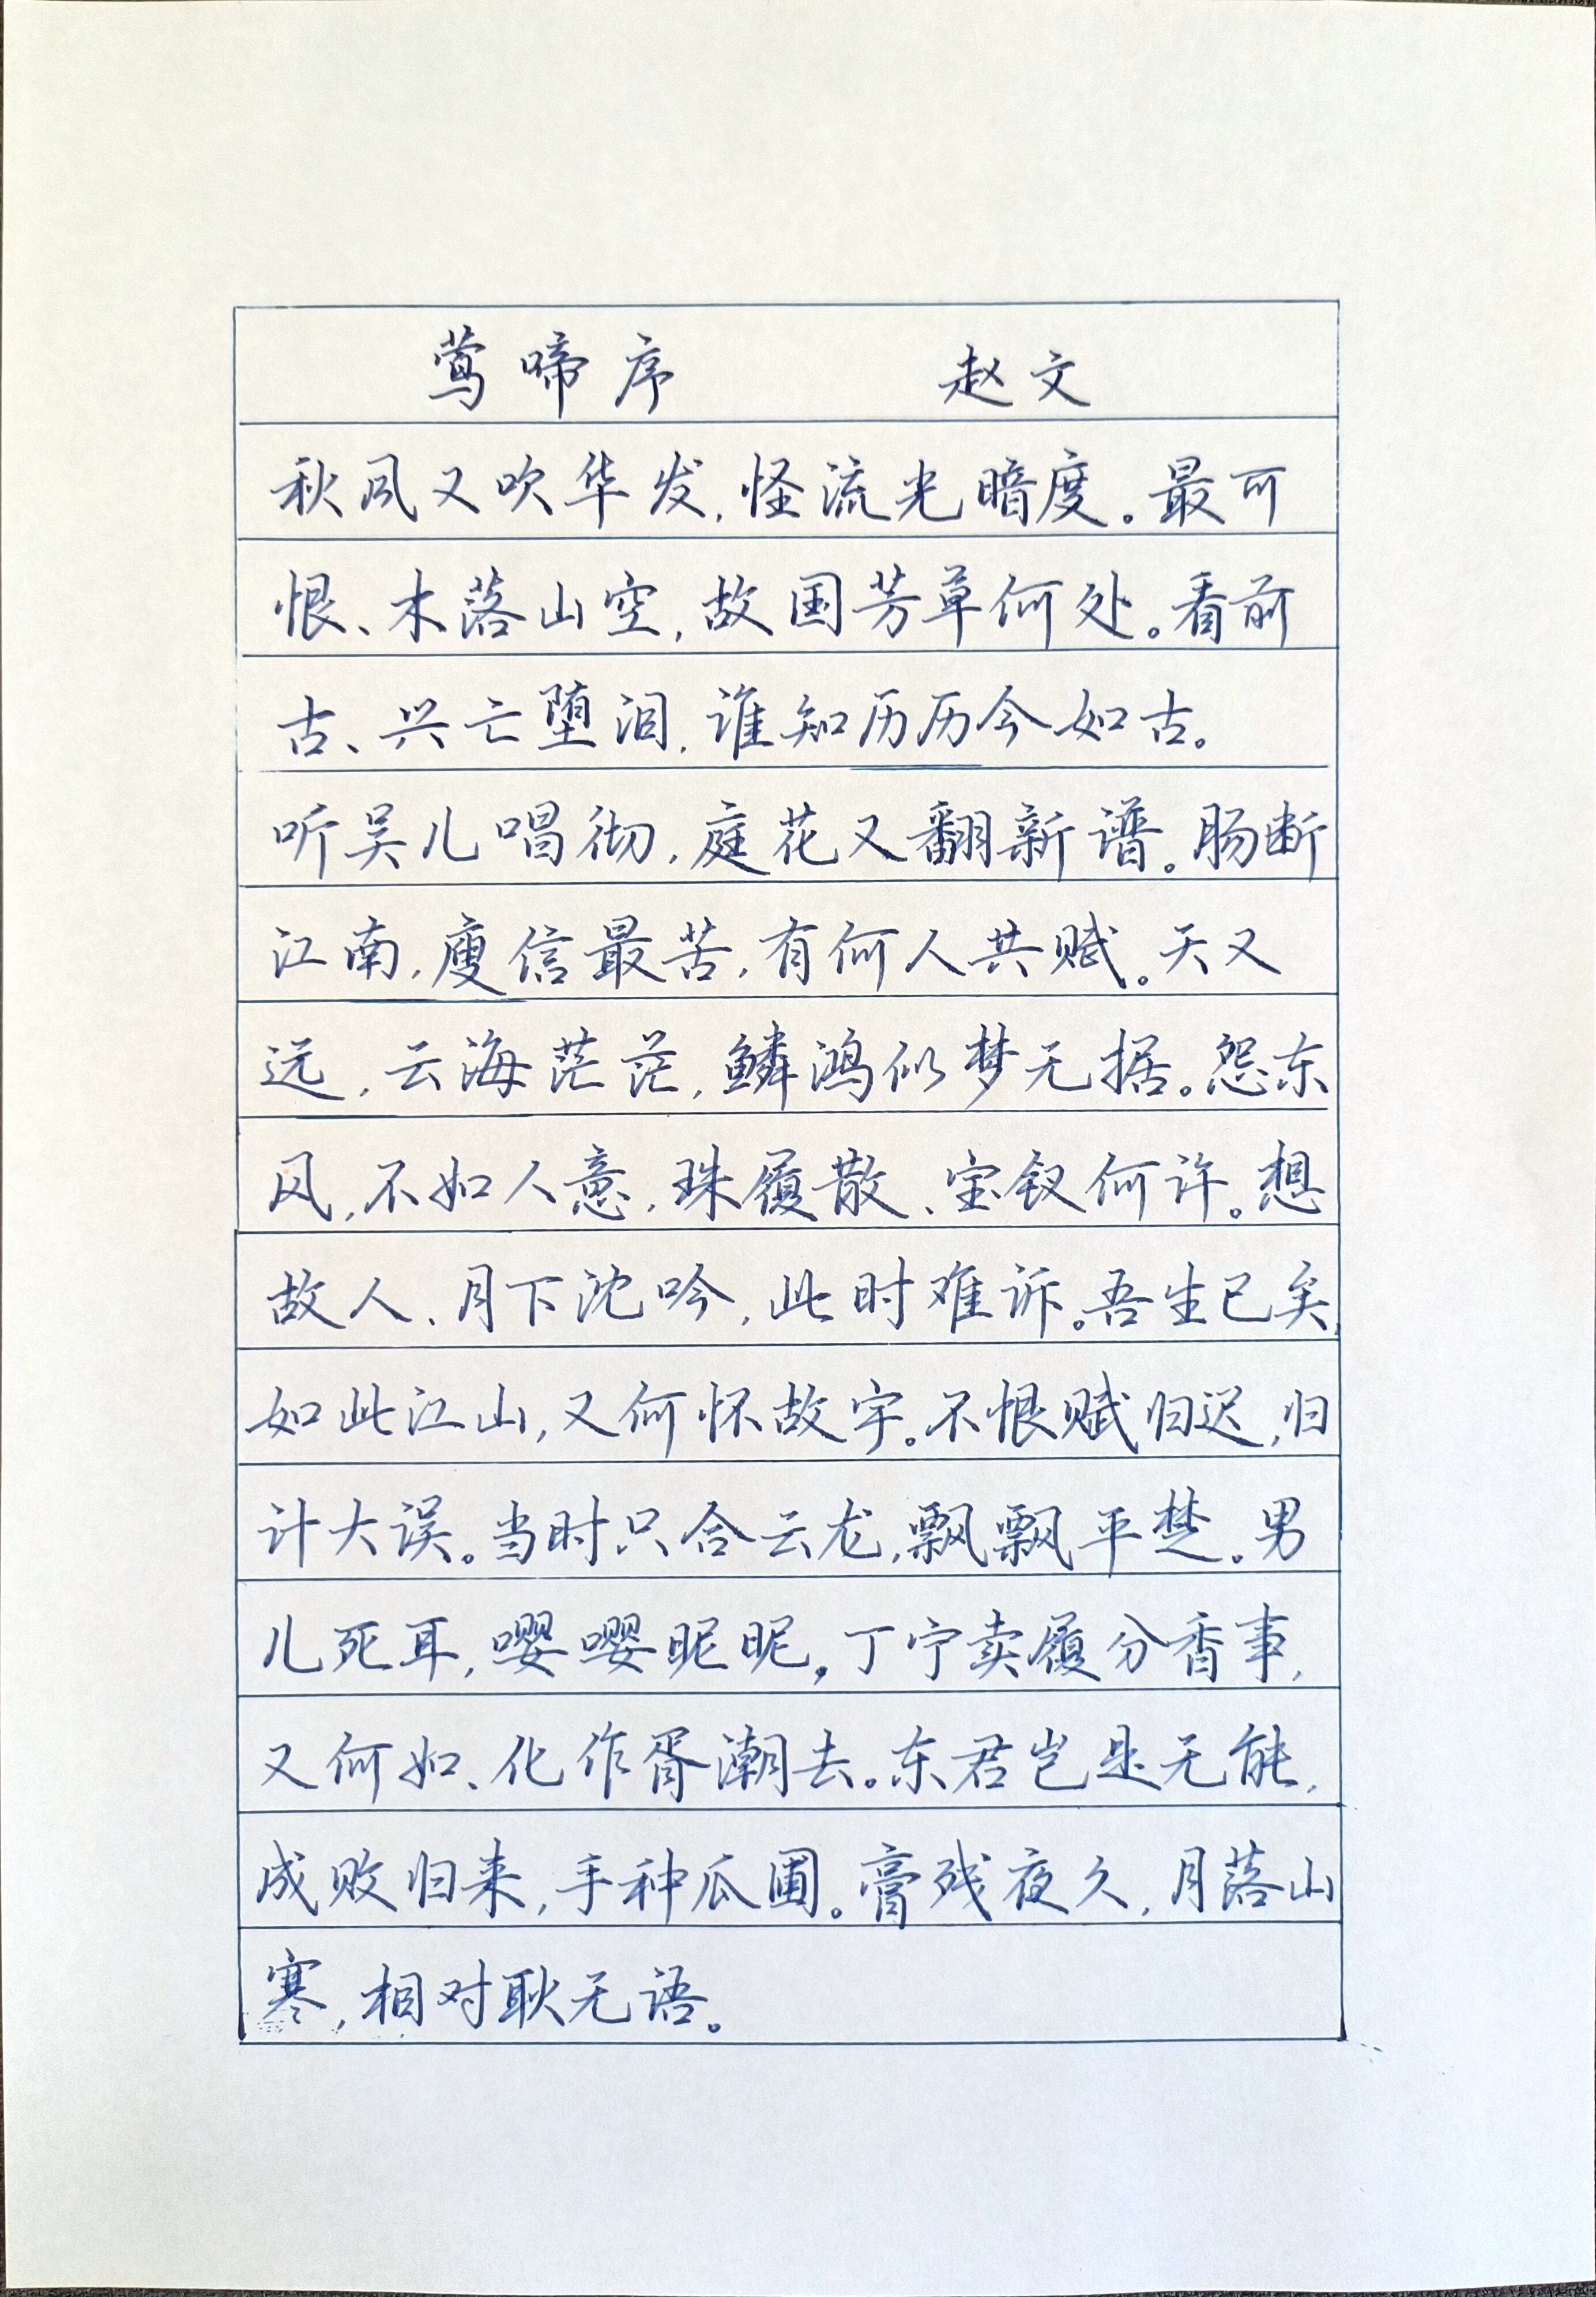 莺啼序 赵文
秋风又吹华发,怪流光暗度。最可
恨、木落山空,故国芳草何处。看前
古、兴亡堕泪,谁知历历今如古。
听吴儿唱彻,庭花又翻新谱。肠断
江南,廋信最苦,有何人共赋。天又
远,云海茫茫,鳞鸿似梦无据。怨东
风,不如人意,珠履散、宝钗何许。想
故人、月下沈吟,此时难诉。吾生已矣,
如此江山,又何怀故宇。不恨赋归迟,归
计大误。当时只合云龙,飘飘平楚。男
儿死耳,嘤嘤昵昵,丁宁卖履分香事,
又何如、化作胥潮去。东君岂是无能,
成败归来,手种瓜圃。膏残夜久,月落山
寒,相对耿无语。